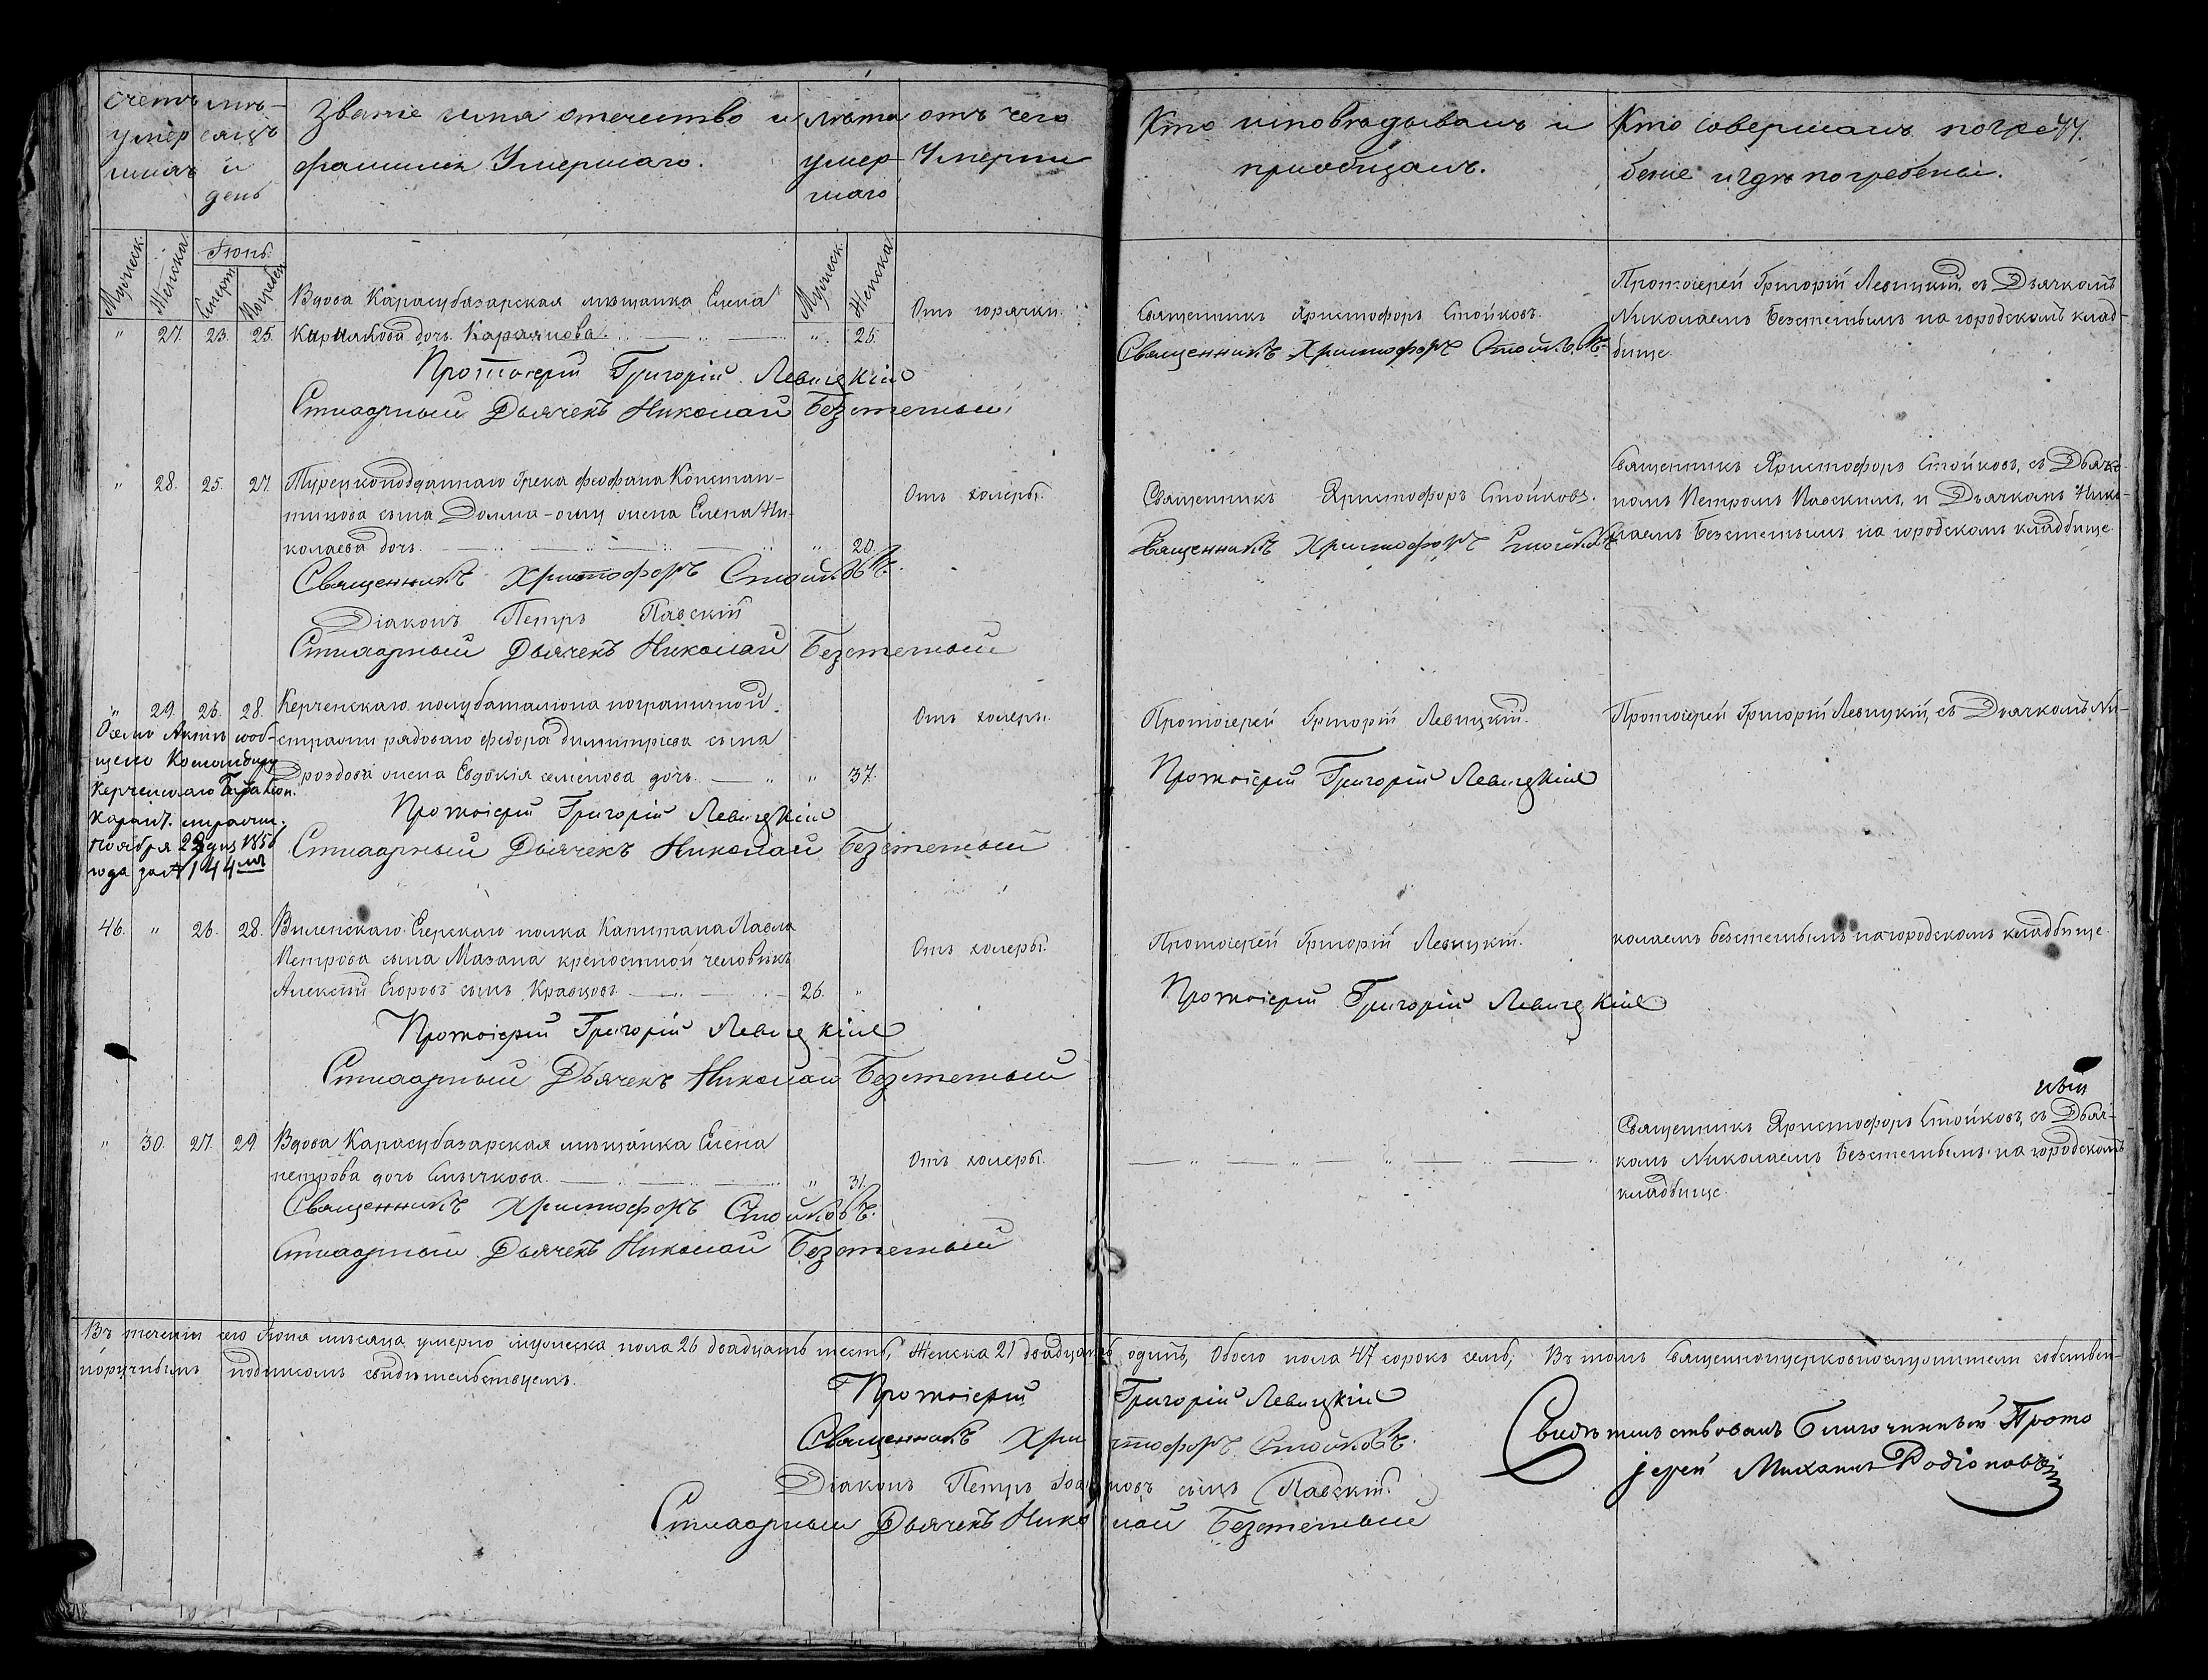 Счетъ умершихъ
мѣсяцъ и день
Званіе имя отечество и фамилия Умершаго.
Лѣта умершаго
отъ чего Умерши
Кто исповѣдывалъ и приобщалъ.
Кто совершалъ погребеніе и гдѣ погребены.
44.
Мужеск. Женска. Іюнь. Смерт. Погребен. Мужеск. Женска.
" 27. 23. 25.
Вдова Карасубазарская мѣщанка Елена
дочь Караянова " 25.
Отъ горячки.
Протоіерей Григорій Левицкій
Стихарный Дьячекъ Николай Безстетный
Священникъ Христофоръ Стойковъ.
Священникъ Христофоръ Стойковъ.
Протоіерей Григорій Левицкій, съ Дьячкомъ
Николаемъ Безстетнымъ на городскомъ клад-
бище.
" 28. 25. 27.
Турецкоподданнаго Грека Феофана Констан-
тинова сына жена Елена Ни-
колаева дочь. " 20.
Отъ холеры.
Священникъ Христофоръ Стойковъ.
Діаконъ Петръ Павскій
Стихарный Дьячекъ Николай Безстетный
Священникъ Христофоръ Стойковъ.
Священникъ Христофоръ Стойковъ
Священникъ Христофоръ Стойковъ, съ Дьяко-
номъ Петромъ Павскимъ, и Дьячкомъ Нико-
лаемъ Безстетнымъ на городскомъ кладбище.
" 29. 26. 28.
Керченскаго полубаталіона пограничной
стражи рядоваго Федора Димитріева сына
Дроздова жена Евдокія Семенова дочь. " 37.
Отъ холеры.
Протоіерей Григорій Левицкій
Стихарный Дьячекъ Николай Безстетный
Командиру
Керченскаго
Карант. стражи.
Ноября 1856
года за № 144мъ
Протоіерей Григорій Левицкій.
Протоіерей Григорій Левицкій
Протоіерей Григорій Левицкій, съ Дьячкомъ Ни-
46. " 26. 28.
Виленскаго Егерскаго полка Капитана Павла
Петрова сына Мазана крепостной человѣкъ
Алексѣй Егоровъ сынъ Кравцовъ 26. "
Отъ холеры.
Протоіерей Григорій Левицкій
Стихарный Дьячекъ Николай Безстетный
Протоіерей Григорій Левицкій.
Протоіерей Григорій Левицкій
колаемъ Безстетнымъ на городскомъ кладбище.
" 30. 27. 29
Вдова Карасубазарская мѣщанка Елена
Петрова дочь Смычкова. " 31.
Отъ холеры.
Священникъ Христофоръ Стойковъ.
Стихарный Дьячекъ Николай Безстетный
Священникъ Христофоръ Стойковъ, съ Дьяч-
комъ Николаемъ Безстетнымъ на городскомъ
кладбище.
Въ теченіи сего Іюня мѣсяца умерло мужеска пола 26 двадцать шесть, Женска 21 двадцать одинъ, Обоего пола 47 сорокъ семь, Въ томъ Священноцерковнослужители собствен-
норучнымъ подпискомъ свидѣтельствуемъ.
Протоіерей Григорій Левицкій
Священникъ Христофоръ Стойковъ.
Діаконъ Петръ Іоанновъ сынъ Павскій.
Стихарный Дьячекъ Николай Безстетный
Свидѣтельствовалъ Благочинный Прото
іерей Михаилъ Родіоновъ